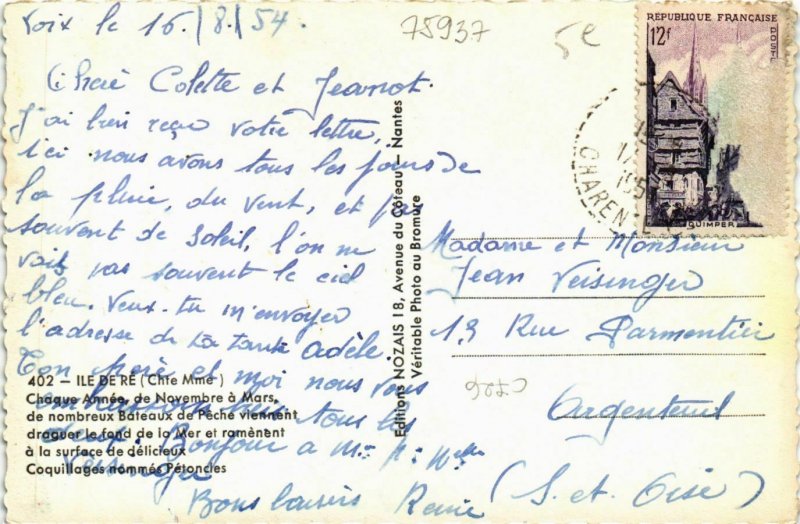 Loix le 16/8/54.
75937
5e
RÉPUBLIQUE FRANÇAISE
12f
POSTE
QUIMPER
CHAREN
Chère Colette et Jeanot.
J'ai bien reçu votre lettre,
ici nous avons tous les jours de
la pluie, du vent, et pas
souvent de soleil, l'on ne
voit pas souvent le ciel
bleu. Veux-tu m'envoyer
l'adresse de ta tante Adèle
Ton père et moi nous vous
embrassons bien tous les
deux. Bonjour a Mr
Veisinger
Bons baisers
402 — ILE DE RÉ (Chte Mme)
Chaque Année, de Novembre à Mars,
de nombreux Bateaux de Pêche viennent
draguer le fond de la Mer et ramènent
à la surface de délicieux
Coquillages nommés Pétoncles
Editions NOZAIS 18, Avenue du Côteau — Nantes
Véritable Photo au Bromure
Madame et Monsieur
Jean Veisinger
13 Rue Parmentier
Argenteuil
(S. et. Oise)